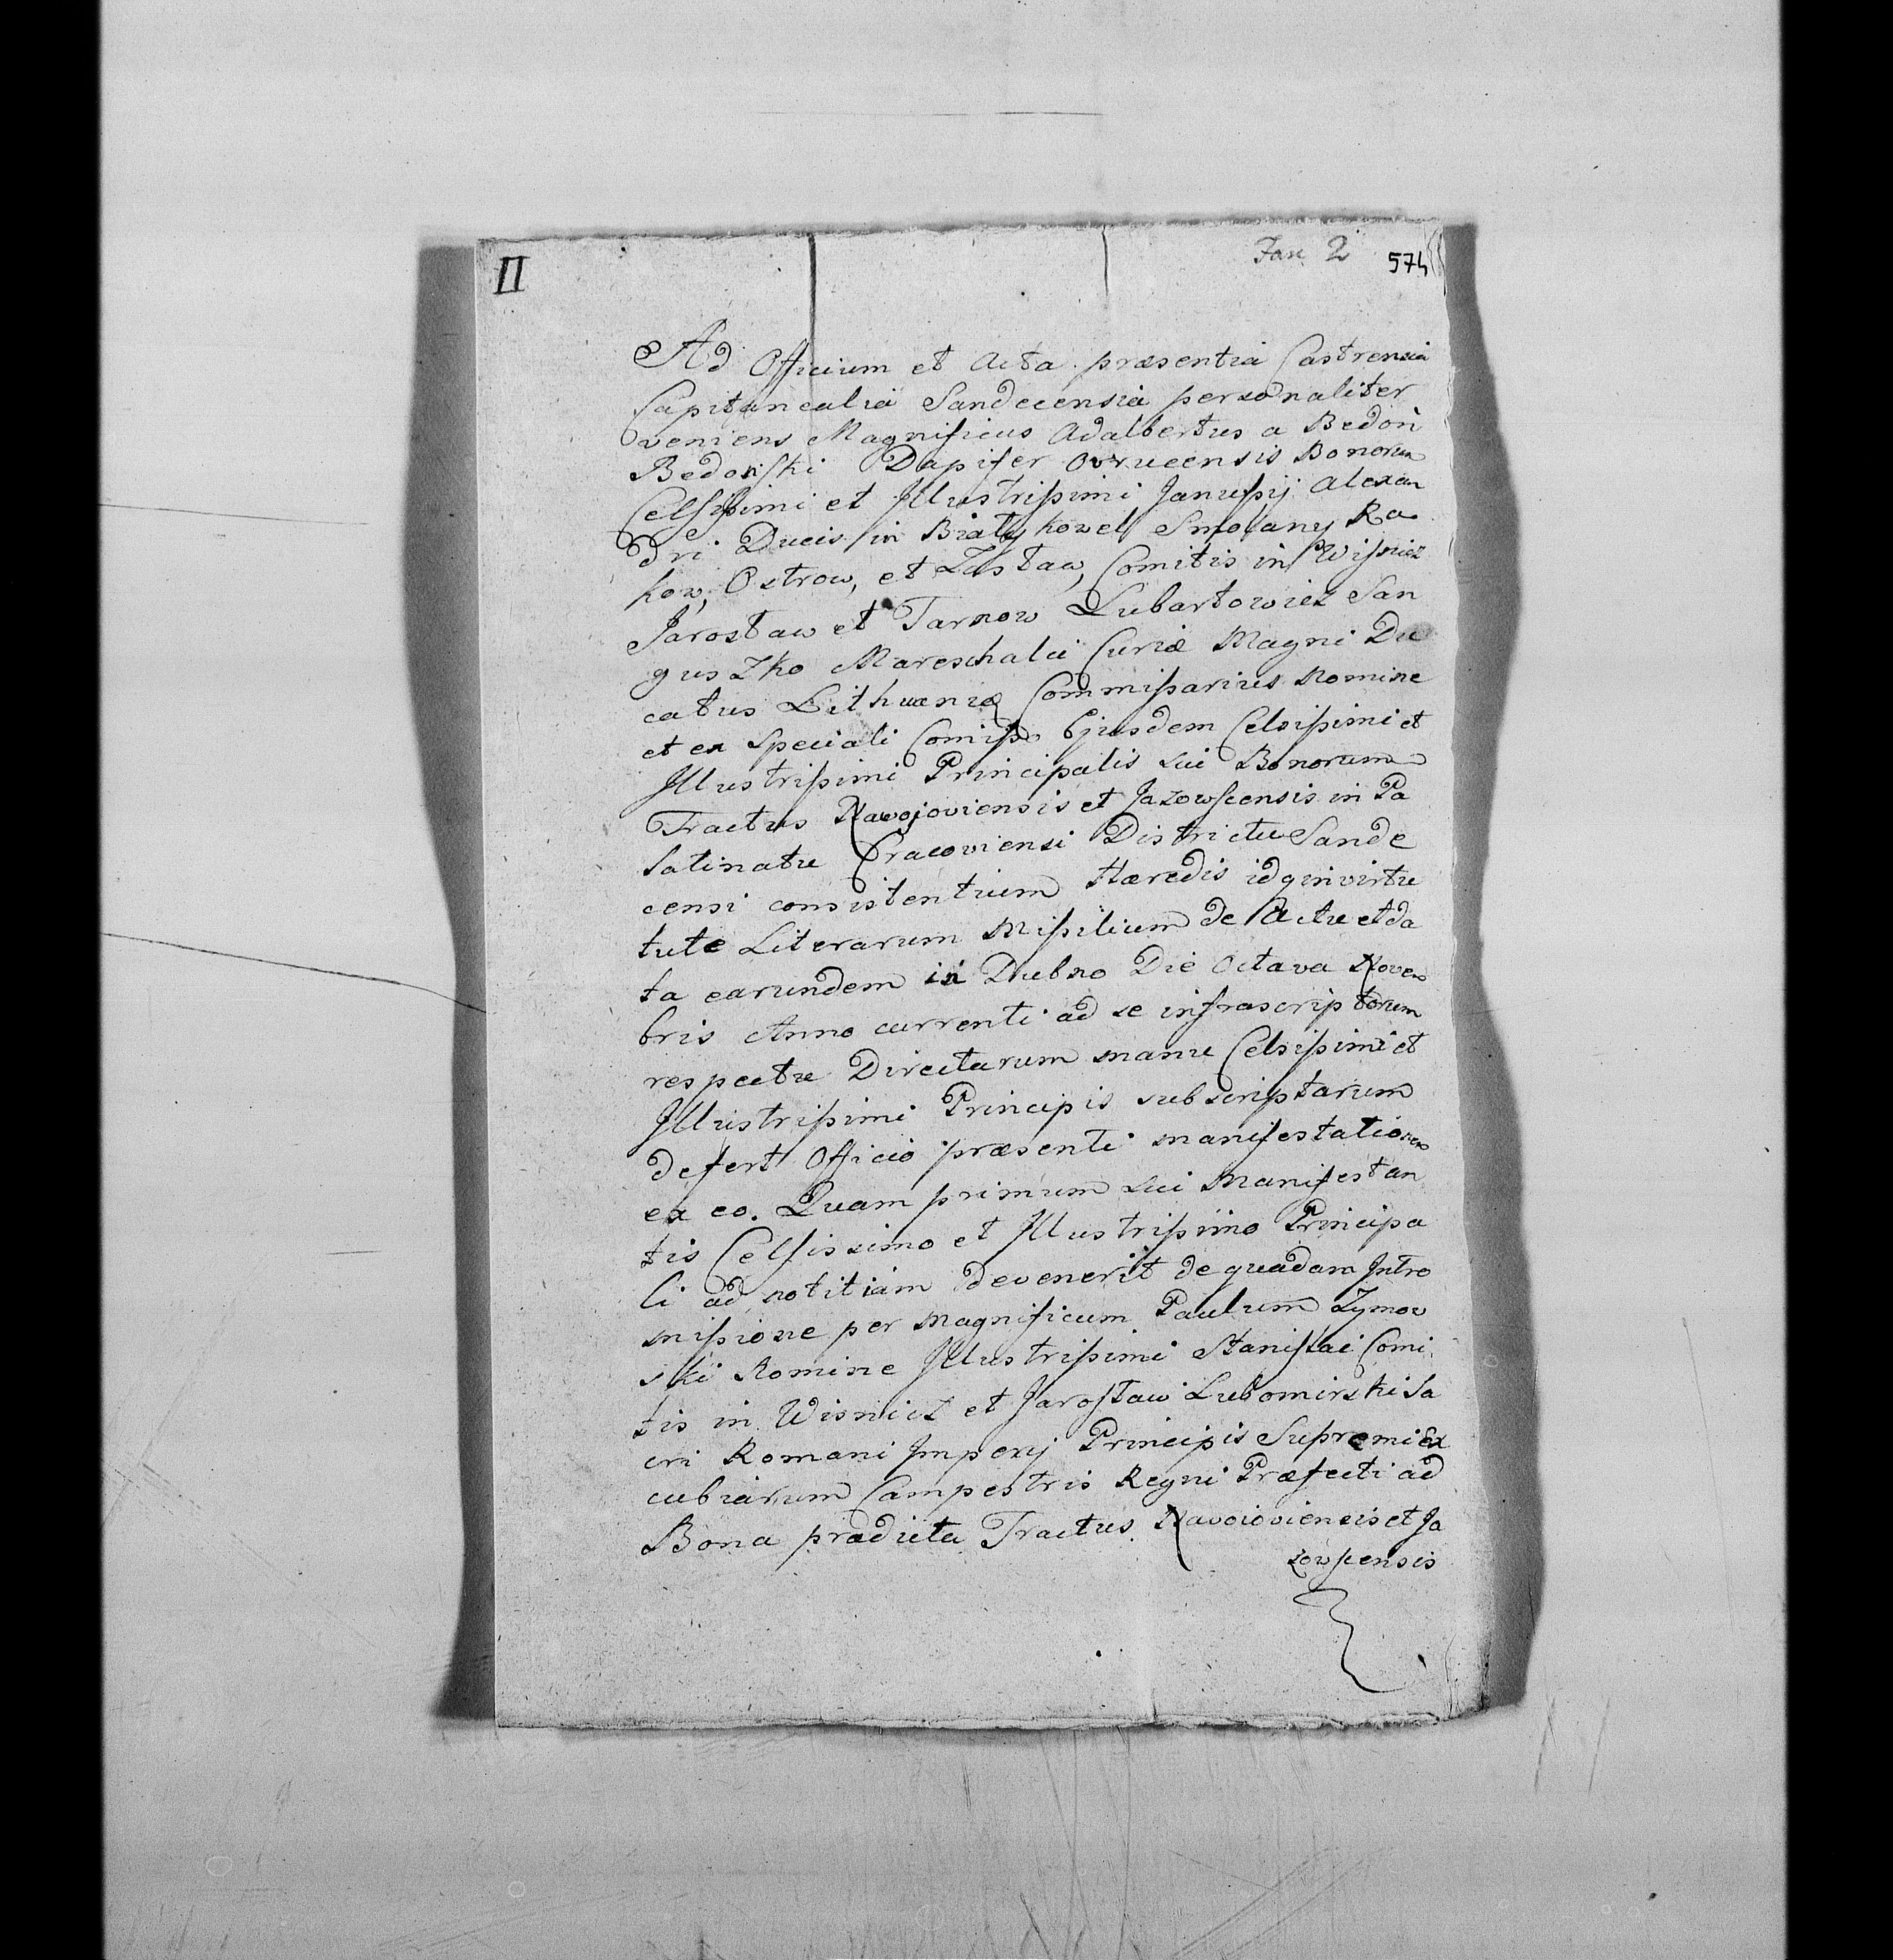 II
Fasc 2
574
Ad Officium et Acta præsentia Castrensia
Capitanealia Sandecensia personaliter
veniens Magnificus Adalbertus a Bedoń
Bedoński Dapifer Ovrucensis Bonorum
Celsissimi et Illustrissimi Janussij Alexan
dri Ducis in Biały kowel Smolany Ra
kow, Ostrow, et Zasław, Comitis in Wisnicz
Jarosław et Tarnow Lubartowicz San
guszko Mareschalci Curiæ Magni Du
catus Lithuaniæ Commissarius Nomine
et ex speciali Comisso Ejusdem Celsissimi et
Illustrissimi Principalis sui Bonorum
Tractus Nawojoviensis et Jazowscensis in Pa
latinatu Cracoviensi Districtu Sande
censi consistentium Hæredis idq in virtu
tute Literarum Missilium de Actu et da
ta earundem in Dubno Die Octava Novem
bris Anno currenti ad se infrascriptorum
respectu Directarum manu Celsissimi et
Illustrissimi Principis subscriptarum
defert Officio præsenti manifestationem
ex eo. Quam primum sui Manifestan
tis Celsissimo et Illustrissimo Principa
li ad notitiam devenerit de quadam Intro
missione per Magnificum Paulum Zymow
ski Nomine Illustrissimi Stanislai Comi
tis in Wisnicz et Jarosław Lubomirski Sa
cri Romani Imperij Principis Supremi Ex
cubiarum Campestris Regni Præfecti ad
Bona prædicta Tractus Navoioviensis et Ja
zowscensis